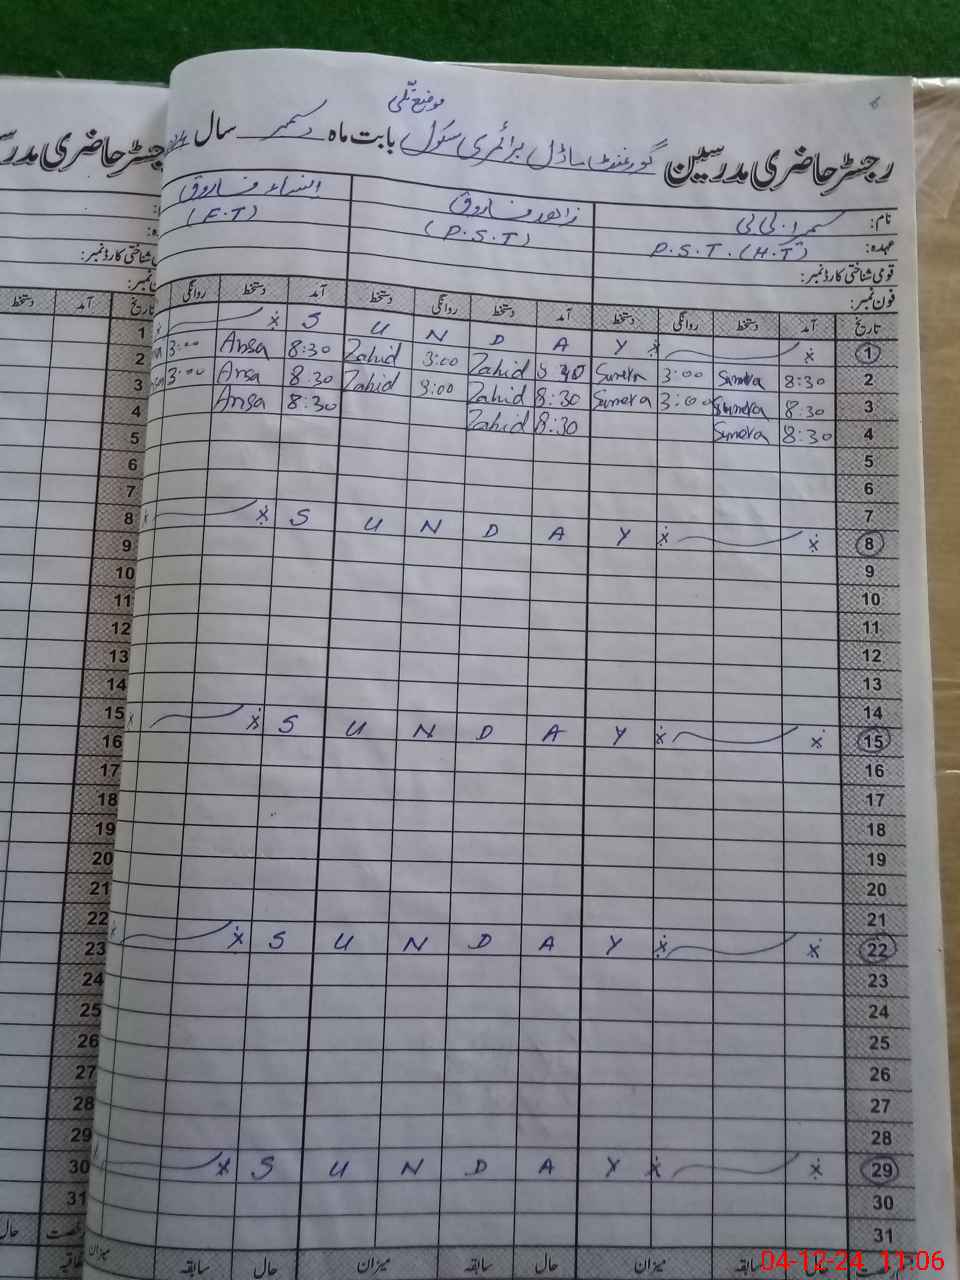 موضع تلی
رجسٹر حاضری مدرسین گورنمنٹ ماڈل پرائمری سکول بابت ماہ دسمبر سال
نام: سمیرا بی بی زاھد فاروق فاروق
عہدہ: P.S.T. (H.T) (P.S.T) (F.T)
قومی شناختی کارڈ نمبر:
فون نمبر:
تاریخ آمد دستخط روانگی دستخط آمد دستخط روانگی دستخط آمد دستخط روانگی
1 S U N D A Y 1
2 3:00 Ansa 8:30 Zahid 3:00 Zahid Sumera 3:00 Sumera 8:30 2
3 3:00 Ansa 8:30 Zahid 3:00 Zahid 8:30 Sumera 3:00 Sumera 8:30 3
4 Ansa 8:30 Zahid 8:30 Sumera 8:30 4
5 5
6 6
7 7
8 S U N D A Y 8
9 9
10 10
11 11
12 12
13 13
14 14
15 S U N D A Y 15
16 16
17 17
18 18
19 19
20 20
21 21
22 S U N D A Y 22
23 23
24 24
25 25
26 26
27 27
28 28
29 S U N D A Y 29
30 30
31 31
میزان حال سابقہ میزان حال سابقہ
04-12-24 11:06